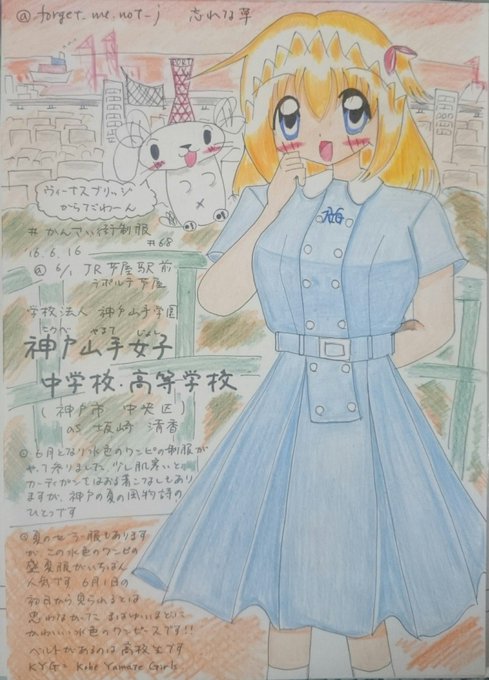 @forget_me.not_j 忘れな草
ヴィーナスブリッジ
からだわーん
#かんさい街制服 #68
16.6.16
@ 6/1 JR芦屋駅前
ラポルテ芦屋
学校法人 神戸山手学園
こうべ やまて じょし
神戸山手女子
中学校・高等学校
(神戸市 中央区)
as 坂崎 清香
6月となり水色のワンピの制服が
やって参りました 少し肌寒いと
カーディガンをはおる着こなしもあり
ますが、神戸の夏の風物詩の
ひとつです
夏のセーラー服もあります
が この水色のワンピの
盛夏服がいちばん
人気です 6月1日の
初日から見られるとは
思わなかった まばゆいほどに
かわいい水色のワンピースです!!
ベルトがあるのは高校生です
KYG= Kobe Yamate Girls
KYG